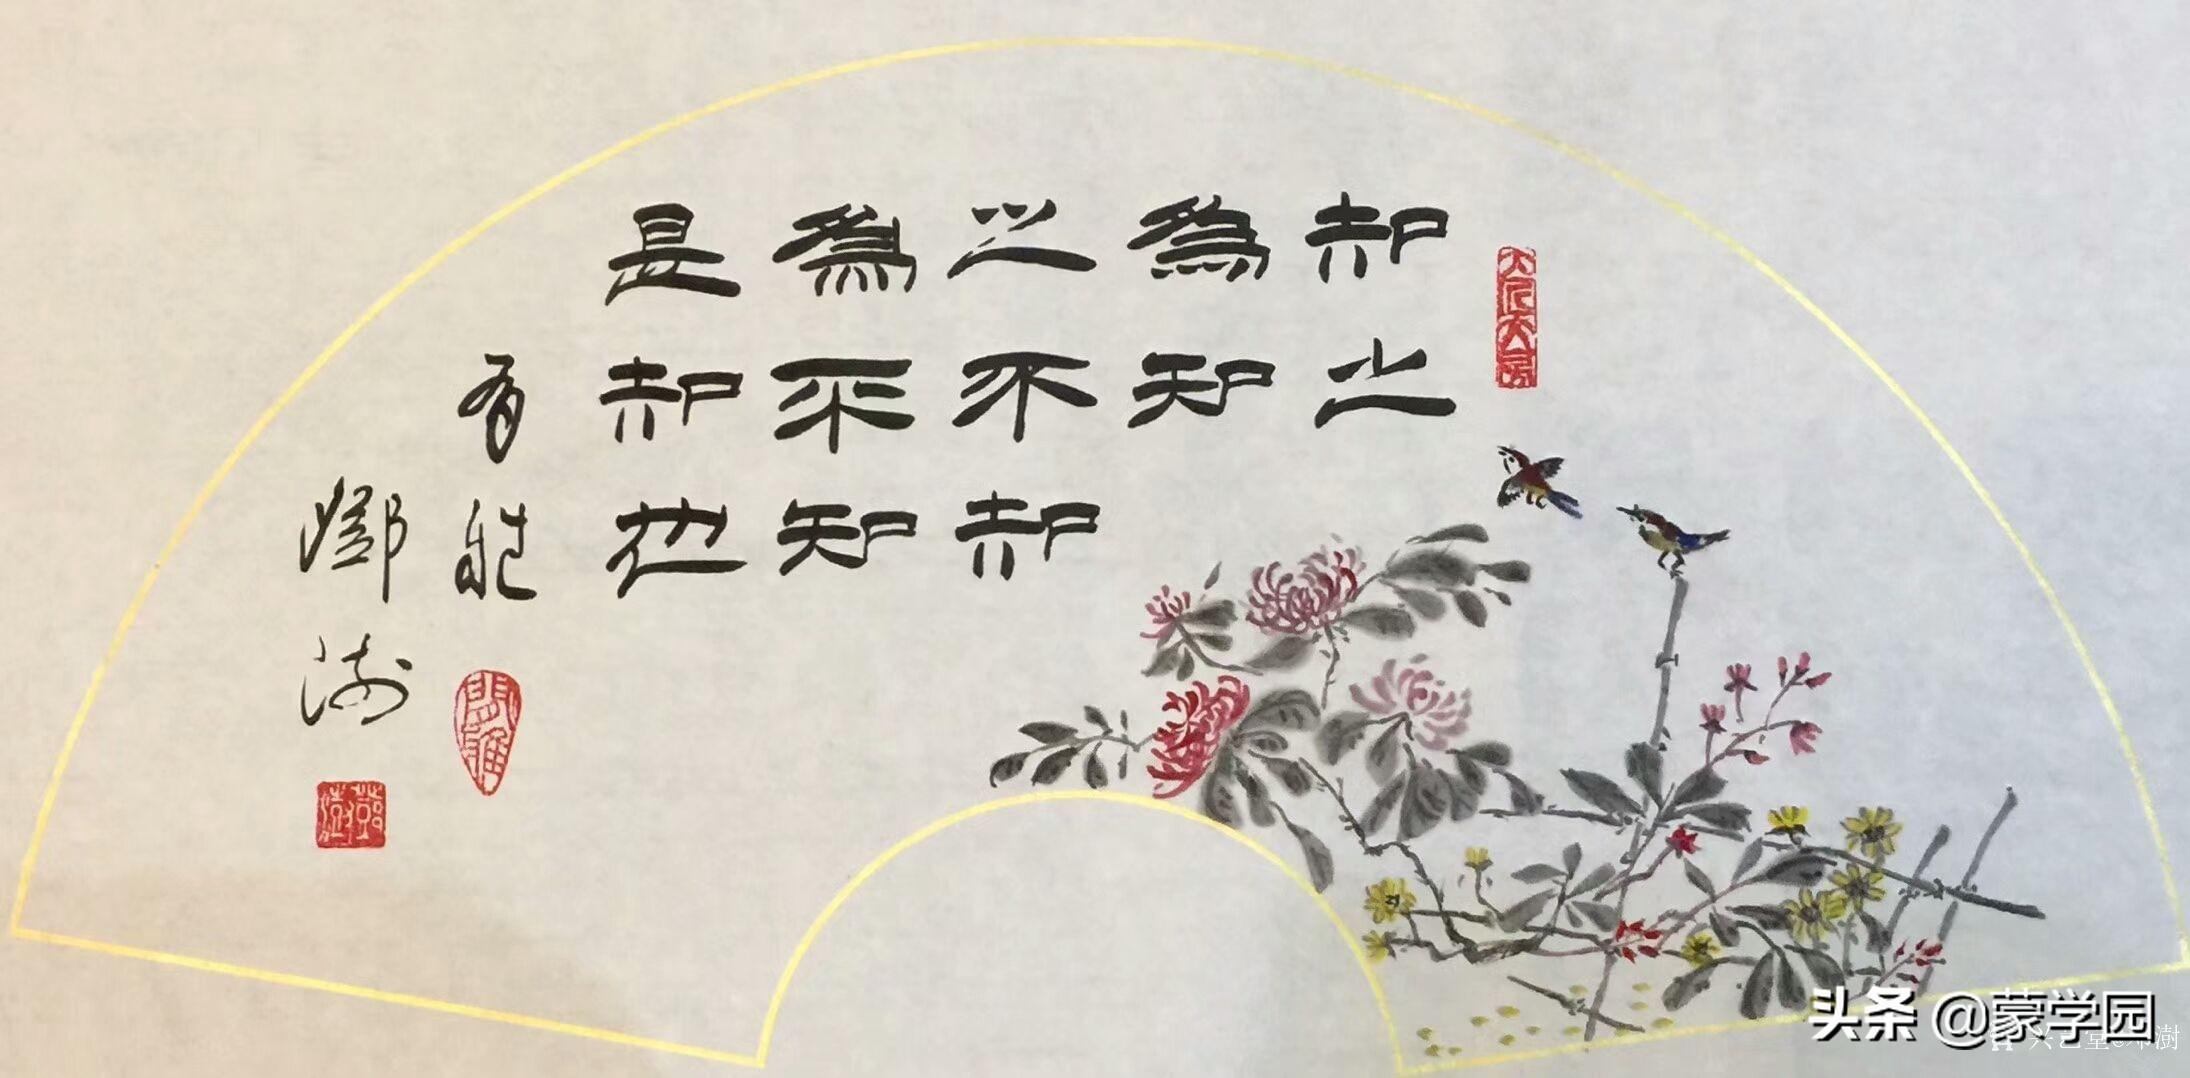 知之
為知
之不知
為不知
是知也
鄧澍
鄧澍
头条 @蒙学园